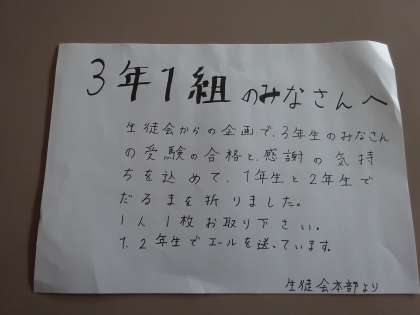 3年1組のみなさんへ
生徒会からの企画で、3年生のみなさん
の受験の合格と、感謝の気持
ちを込めて、1年生と2年生で
だるまを折りました。
1人1枚お取り下さい。
1、2年生でエールを送っています。
生徒会本部より